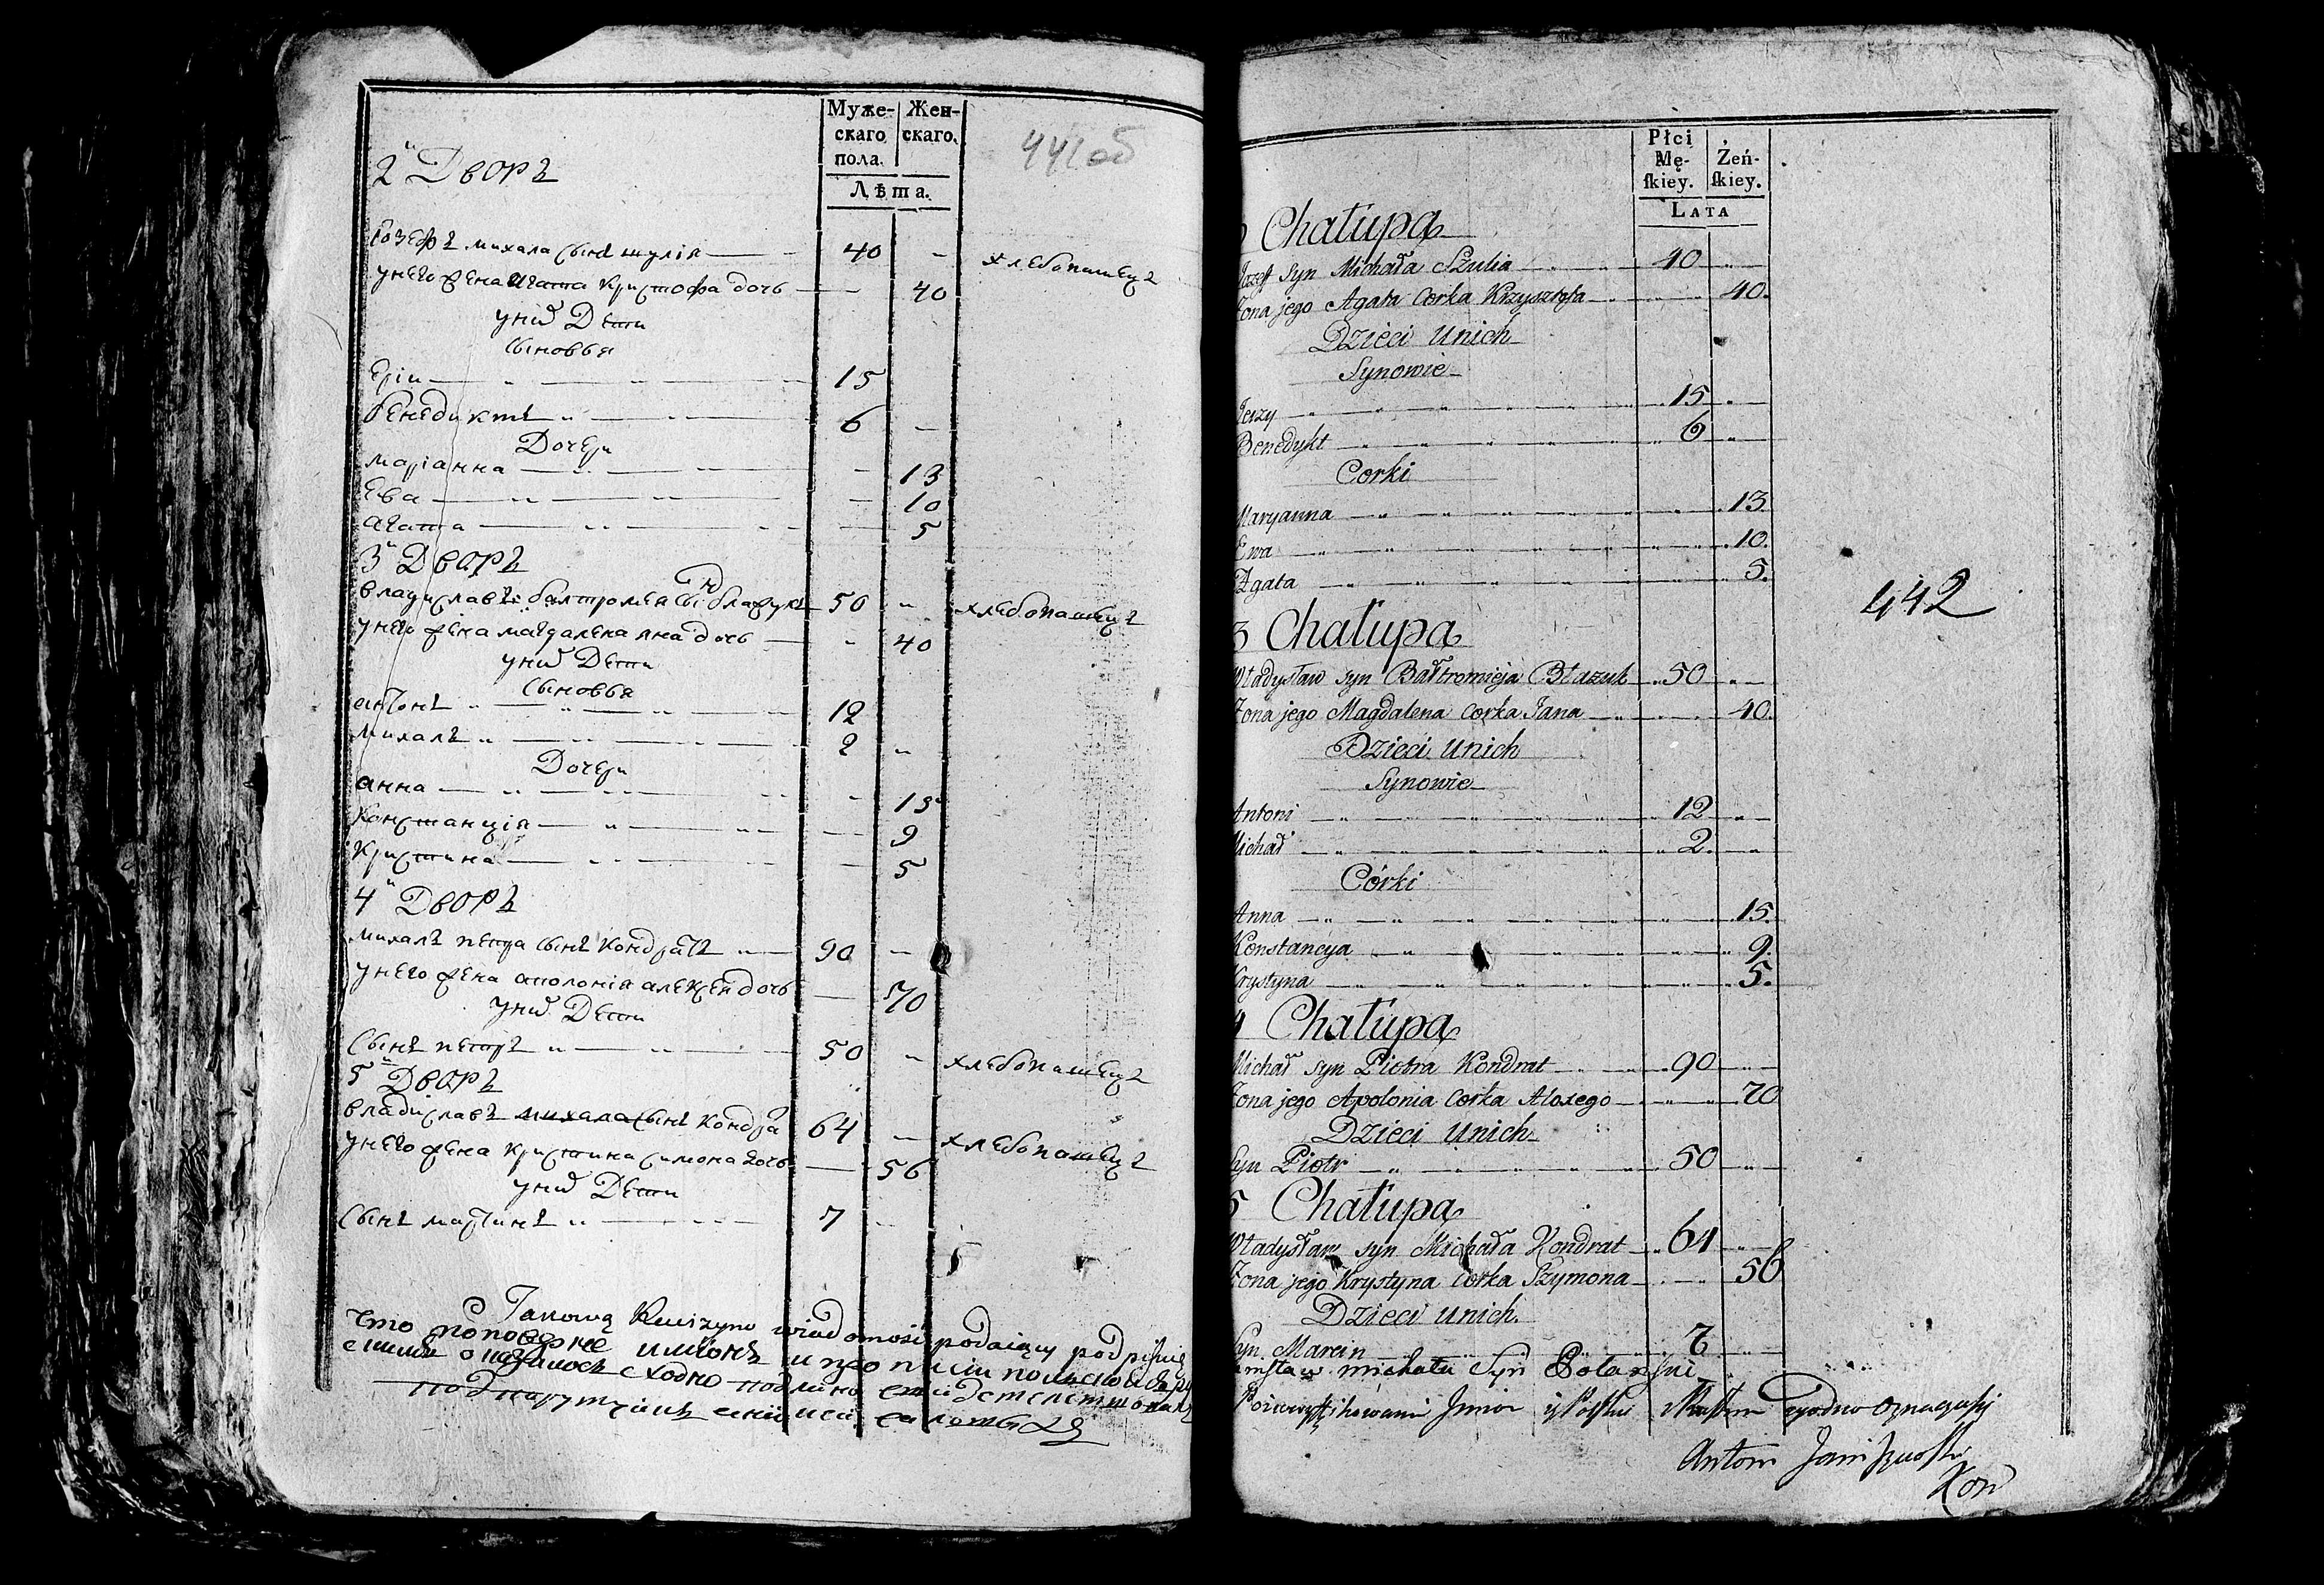 Муже-
скаго
пола.
Жен-
скаго.
Лѣта.
441 об
2й Дворъ
Іозефъ михала сынъ шулія 40 хлебопашецъ
унего жена агата Кристофа дочь 40
уних Дети
сыновья
Ерiи 15
бенедиктъ 6
Дочери
маріанна 13
Ева 10
агата 5
3й Дворъ
владиславъ балтромея сынъ блажукъ 50 хлебопашецъ
унего жена магдалена яна дочь 40
уних Дети
сыновья
антонъ 12
михалъ 2
Дочери
анна 15
констанція 9
кристина 5
4й Дворъ
михалъ петра сынъ кондратъ 90
унего жена аполонія алексея дочь 70
уних Дети
сынъ петръ 50 хлебопашецъ
5й Дворъ
владиславъ михала сынъ кондра 64 хлебопашецъ
унего жена кристина симона дочь 56
уних Дети
сынъ мартинъ 7
Takową Rewizyną wiadomość podaiąc podpisuię
что
сходно
Płci
Mę-
ſkiey.
Żeń-
ſkiey.
Lata
Chałupa
Jozef syn Michała Szulia 40
Zona jego Agata Corka Krzysztofa 40.
Dzieci Unich
Synowie
Jerzy 15
Benedykt 6
Corki
Maryanna 13
Ewa 10.
Agata 5.
442
3 Chałupa
Władysław syn Bałtromieja Błazuk 50
Zona jego Magdalena Corka Jana 40.
Dzieci Unich
Synowie
Antoni 12
Michał 2.
Córki
Anna 15.
Konstancya 9.
Krystyna 5.
4 Chałupa
Michał syn Piotra Kondrat 90
Zona jego Apolonia Corka Alexego 70
Dzieci Unich
Syn Piotr 50
5 Chałupa
Władysław syn Michała Kondrat 64
Zona jego Krystyna Corka Szymona 56
Dzieci Unich.
Syn Marcin 7
michała Syn
zgodno
Antoni